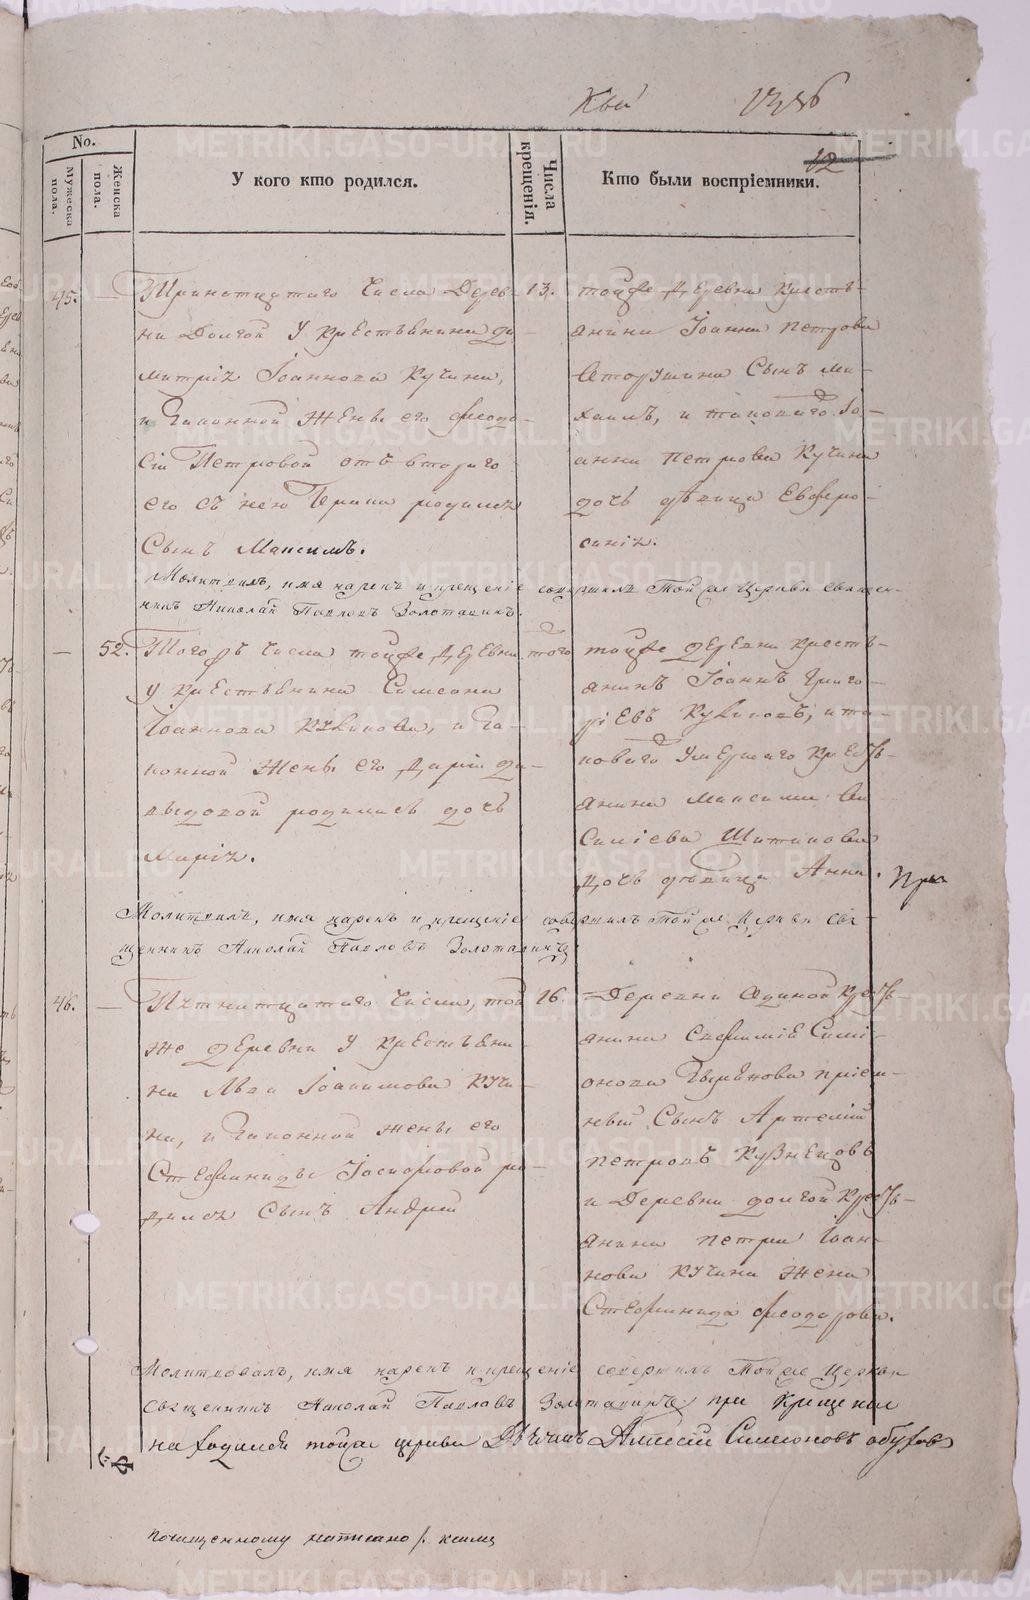 Кви
12
No.
Мужеска пола.
Женска пола.
У кого кто родился.
Числа крещенія.
Кто были воспріемники.
45. — Тринатцатаго числа Дерев-
ни Долгой у крестьянина Ди-
митрія Іоаннова Кучина,
и законной жены его Феодо-
сіи Петровой отъ втораго
его съ нею брака родился
Сынъ Максимъ.
13. тойже деревни кресть-
янина Іоанна Петрова
Сынъ Ми-
хаилъ, и таковаго Іо-
анна Петрова Кучина
дочь девица Евфро-
синія.
Молитвилъ, имя нарекъ и крещеніе совершилъ той же Церкви священ-
никъ Николай Павловъ Золотавинъ.
— 52. Того жъ числа тойже деревни
у крестьянина Симеона
Іоаннова Куликова, и за-
конной жены его Даріи Да-
выдовой родилась дочь
Марія.
того тойже деревни кресть-
янинъ Іоаннъ Григо-
рьевъ Куликовъ, и та-
коваго умершаго кресть-
янина Максима Ва-
силіева Шитикова
дочь девица Анна. При
Молитвилъ, имя нарекъ и крещеніе совершилъ той же Церкви свя-
щенникъ Николай Павловъ Золотавинъ
46. — Пятнатцатаго числа, той
же деревни у крестьяни-
на Льва Іоакимова Кучи-
на, и законной жены его
Стефаниды Іосифовой ро-
дился Сынъ Андрей
16. Деревни Одиной кресть-
янина Евфимія Сими-
онова пріем-
ный Сынъ Артемій
Петровъ Кузнецовъ
и Деревни Долгой кресть-
янина Петра Іоан-
нова Кучина жена
Стефанида Феодорова.
Молитвовалъ, имя нарекъ и крещеніе совершилъ той же Церкви
священникъ Николай Павловъ Золотавинъ при Крещеніи
находился тойже церкви Дьячекъ Алексей Симеоновъ Обуховъ
почищенному написано
METRIKI.GASO-URAL.RU